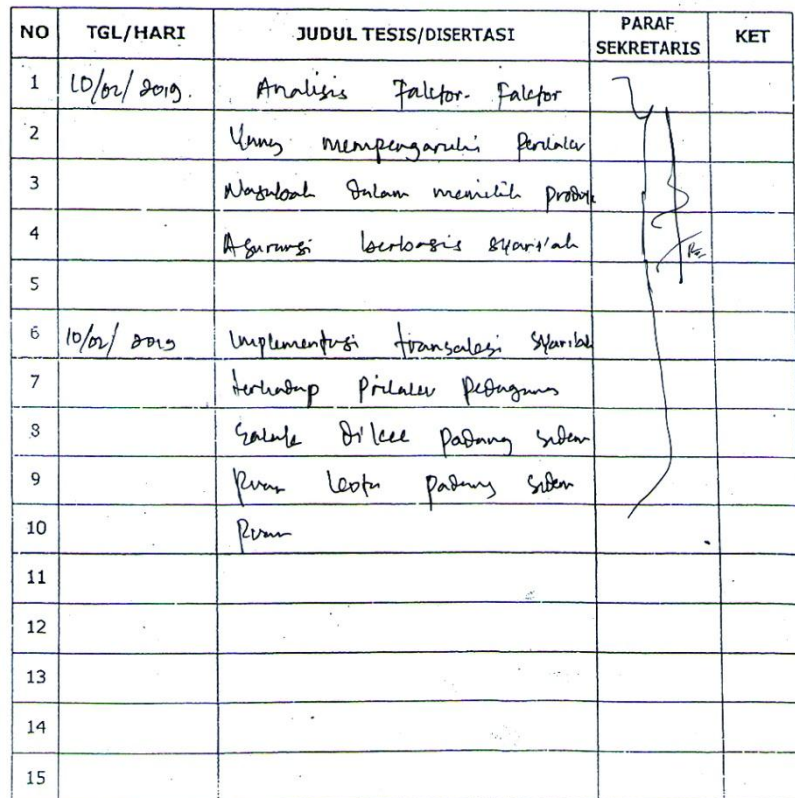 NO TGL/HARI JUDUL TESIS/DISERTASI PARAF SEKRETARIS KET
1 10/02/2019. Analisis Faktor-Faktor
2 Yang mempengaruhi Perilaku
3 Nasabah Dalam memilih Produk
4 Asuransi berbasis syari'ah
5
6 10/02/2019 Implementasi transaksi Syariah
7 terhadap Prilaku Pedagang
8 Salak Di kec Padang sidem
9 Puan kota Padang sidem
10 Puan
11
12
13
14
15